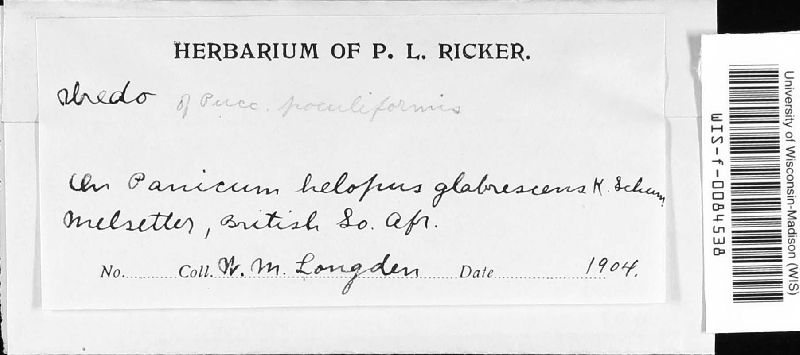 HERBARIUM OF P. L. RICKER.
Uredo of Pucc. poculiformis
On Panicum helopus glabrescens K. Schum
Melsetter, British So. Afr.
No. Coll. W. M. Longden Date 1904.
University of Wisconsin-Madison (WIS)
WIS-f-0084538